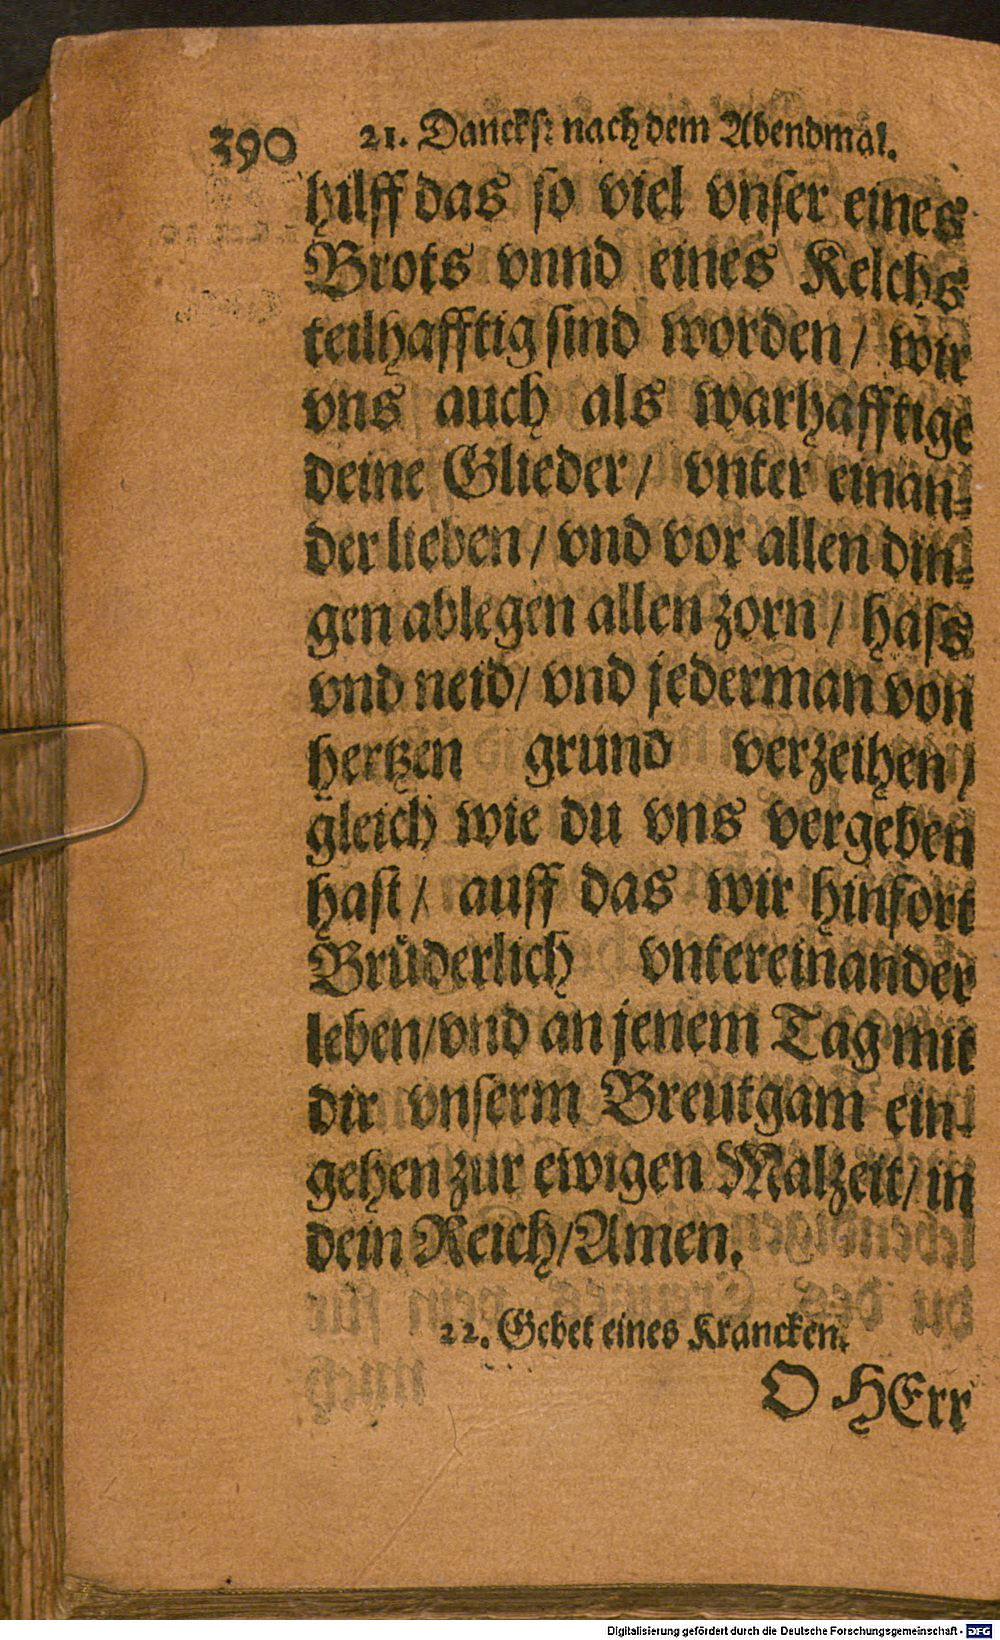 390 21. Dancks: nach dem Abendmal.
hilff das so viel vnser eines
Brots vnnd eines Kelchs
teilhafftig sind worden / wir
vns auch als warhafftige
deine Glieder / vnter einan-
der lieben / vnd vor allen din-
gen ablegen allen zorn / hass
vnd neid / vnd jederman von
hertzen grund verzeihen /
gleich wie du vns vergeben
hast / auff das wir hinfort
Brüderlich vntereinander
leben / vnd an jenem Tag mit
dir vnserm Breutgam ein-
gehen zur ewigen Malzeit / in
dein Reich / Amen.
22. Gebet eines Krancken.
O HErr
Digitalisierung gefördert durch die Deutsche Forschungsgemeinschaft - DFG